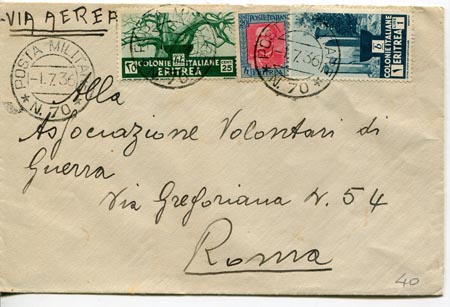 VIA AEREA
POSTA MILITARE
-1.7.36
N. 70
COLONIE ITALIANE
ERITREA
25
POSTE ITALIANE
POSTA MILITARE
7.36
N. 70
COLONIE ITALIANE
1 ERITREA 1
Alla
Associazione Volontari di
Guerra
Via Gregoriana N. 54
Roma
40